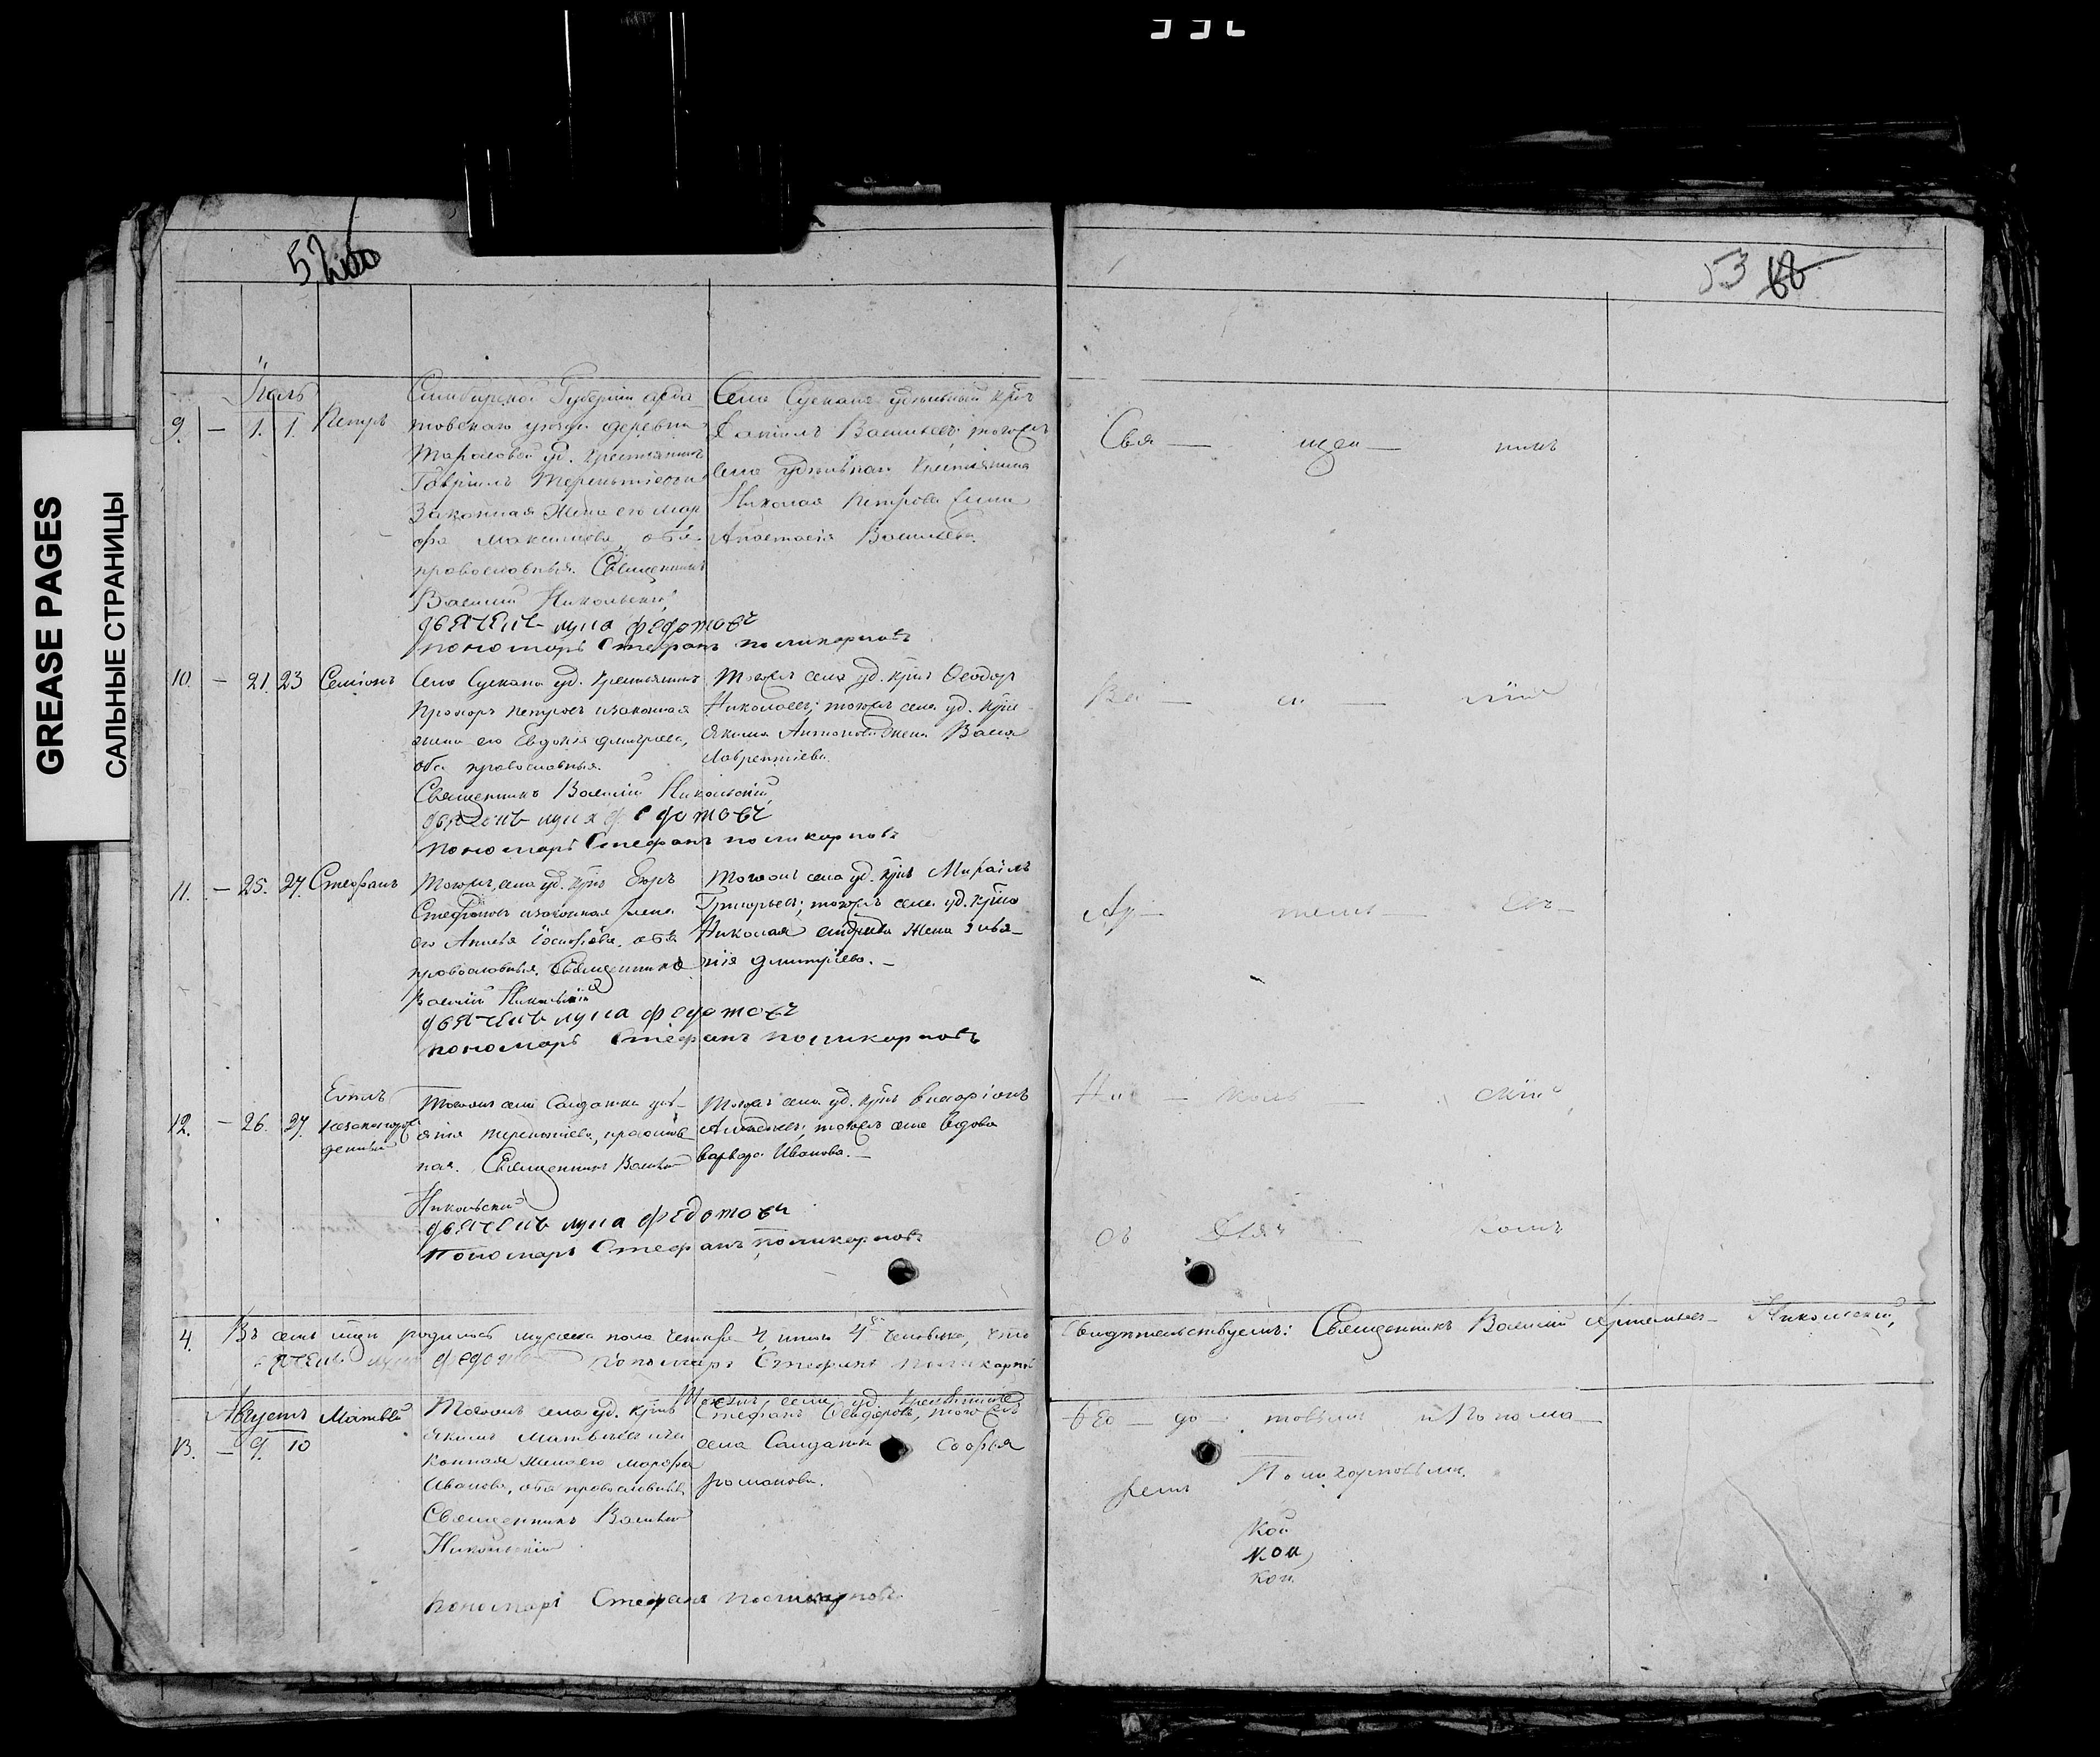 GREASE PAGES
САЛЬНЫЕ СТРАНИЦЫ
52
53
Іюль
9. — 1. 1. Петръ
Симбирской Губерніи арда-
товскаго уѣзда деревни
уд. крестьянинъ
Гавріилъ Терентьевъ и
Законная Жена его Мар
фа Максимова, оба
православныя. Священникъ
Василій Никольскій,
дьячекъ лука федотовъ
пономарь Стефанъ поликарповъ
Села Сускана удѣльный крᲂнъ
Данiилъ Васильевъ; тогожъ
села удѣльнаго Крестьянина
Николая Петрова жена
Анастасія Васильева.
Свя — щен — никъ
10. — 21. 23 Семіонъ
Села Сускана уд. крестьянинъ
Прохоръ Петровъ и законная
жена его Евдокія Дмитріева,
оба православныя.
Священникъ Василій Никольскій,
дьячекъ лука федотовъ
пономарь Стефанъ поликарповъ
Тогожъ села уд. крнъ Ѳеодоръ
Николаевъ; тогожъ села уд. крна
Якима Антонова жена Васса
Лаврентіева.
Ва — си — лій
11. — 25. 27. Стефанъ
Тогожъ села уд. крнъ Егоръ
Стефановъ и законная жена
его Анисья Іосифова, оба
православныя. Священникъ
Василій Никольскій
дьячекъ лука федотовъ
пономарь Стефанъ поликарповъ
Тогожъ села уд. крнъ Михаилъ
Григорьевъ; тогожъ села уд. крна
Николая Андреева жена Евва-
нія Дмитріева. —
Ар — темь — евъ —
12. — 26. 27. незаконорож
денный
Тогожъ села Солдатка
Терентьева, православ
ная. Священникъ Василій
Никольскій
дьячекъ лука федотовъ
пономарь Стефанъ поликарповъ
Тогожъ села уд. крнъ Иларіонъ
Алексѣевъ; тогожъ села вдова
варвара Иванова. —
Ни — коль — скій
съ Дьяч — комъ
4. Въ семъ мцѣ родилось мужеска пола четыре 4, итого 4 человѣка, что
дьячекъ лука федотовъ пономарь Стефанъ поликарповъ
свидѣтельствуемъ: Священникъ Василій Артемьевъ Никольскій,
Августъ Матвѣй
13. — 9. 10
Тогожъ села уд. крнъ
Якимъ Матвѣевъ и за
конная жена его Марфа
Иванова, оба православныя
Священникъ Василій
Никольскій
пономарь Стефанъ поликарповъ
Тогожъ села уд. крестьянинъ
Стефанъ Ѳеодоровъ, тогожъ
села Солдатка Софья
романова.
Ѳео — до — товымъ и Понома —
ремъ Поликарповымъ.
кой
кой
кой